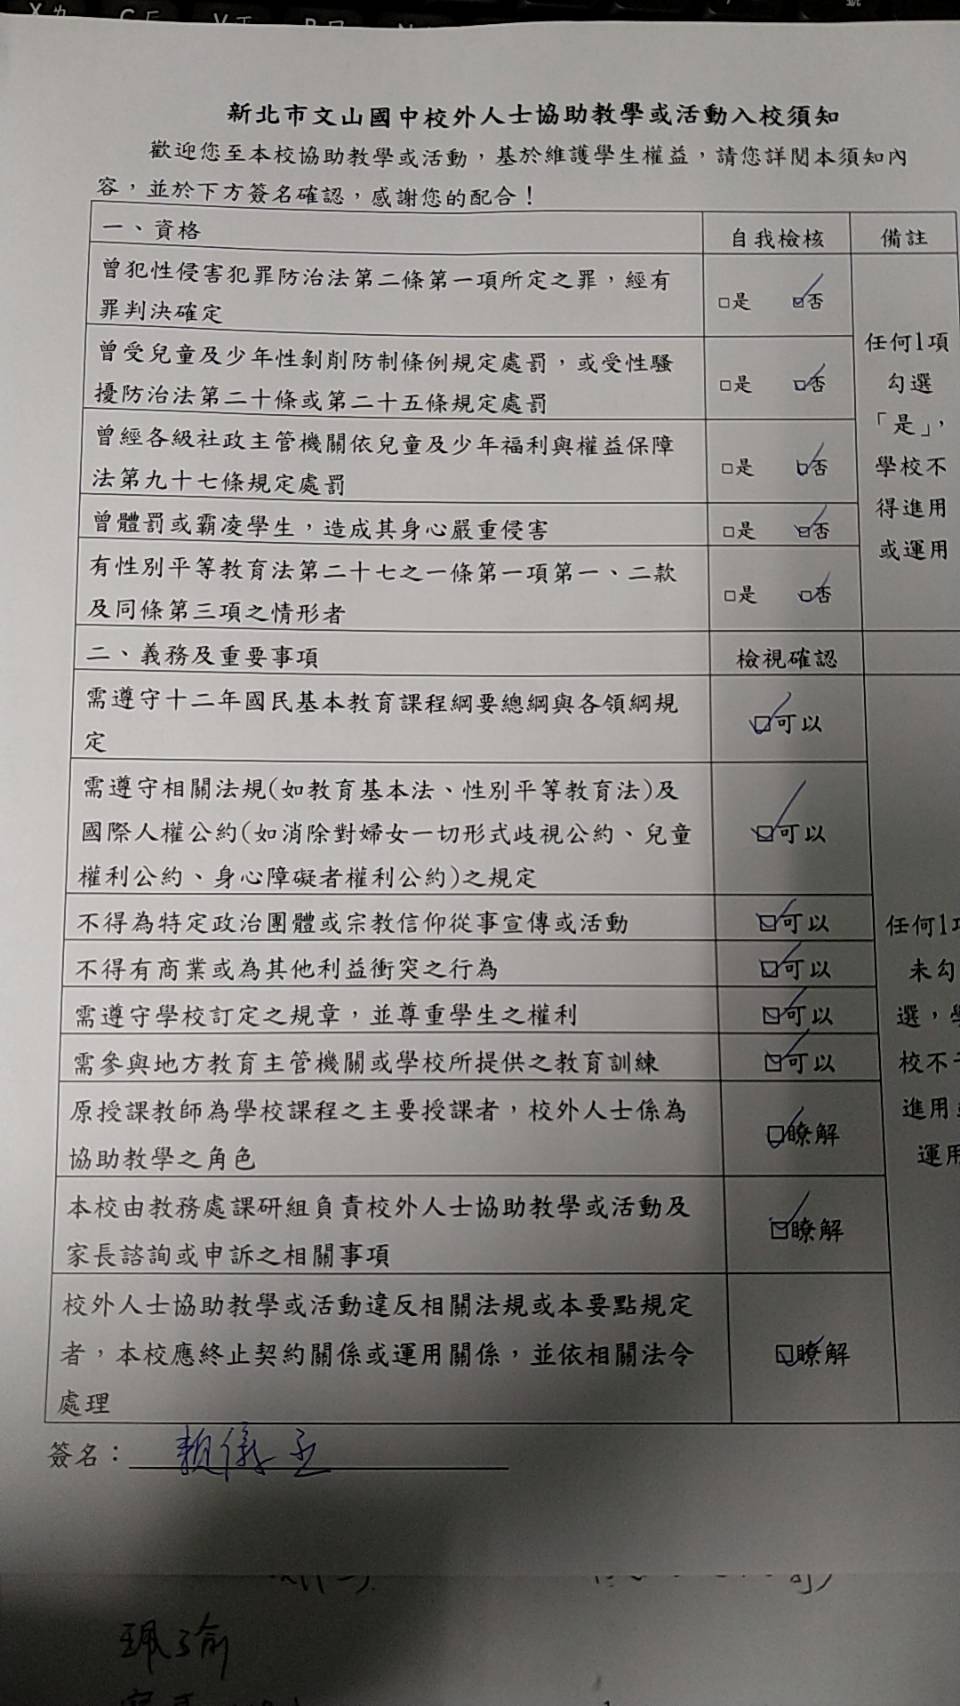 新北市文山國中校外人士協助教學或活動入校須知
歡迎您至本校協助教學或活動，基於維護學生權益，請您詳閱本須知內
容，並於下方簽名確認，感謝您的配合！
一、資格 自我檢核 備註
曾犯性侵害犯罪防治法第二條第一項所定之罪，經有
罪判決確定
□是 ☑否
曾受兒童及少年性剝削防制條例規定處罰，或受性騷
擾防治法第二十條或第二十五條規定處罰
□是 ☑否
曾經各級社政主管機關依兒童及少年福利與權益保障
法第九十七條規定處罰
□是 ☑否
曾體罰或霸凌學生，造成其身心嚴重侵害 □是 ☑否
有性別平等教育法第二十七之一條第一項第一、二款
及同條第三項之情形者
□是 ☑否
任何1項
勾選
「是」，
學校不
得進用
或運用
二、義務及重要事項 檢視確認
需遵守十二年國民基本教育課程綱要總綱與各領綱規
定
☑可以
需遵守相關法規(如教育基本法、性別平等教育法)及
國際人權公約(如消除對婦女一切形式歧視公約、兒童
權利公約、身心障礙者權利公約)之規定
☑可以
不得為特定政治團體或宗教信仰從事宣傳或活動 ☑可以
不得有商業或為其他利益衝突之行為 ☑可以
需遵守學校訂定之規章，並尊重學生之權利 ☑可以
需參與地方教育主管機關或學校所提供之教育訓練 ☑可以
原授課教師為學校課程之主要授課者，校外人士係為
協助教學之角色
☑瞭解
本校由教務處課研組負責校外人士協助教學或活動及
家長諮詢或申訴之相關事項
☑瞭解
校外人士協助教學或活動違反相關法規或本要點規定
者，本校應終止契約關係或運用關係，並依相關法令
處理
☑瞭解
任何1
未勾
選，
校不
進用
運用
簽名：賴儀丞